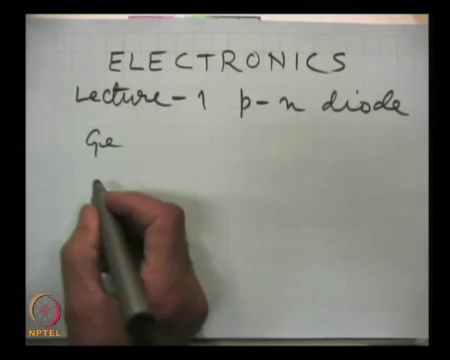 ELECTRONICS
Lecture-1 p-n diode
Ge
NPTEL